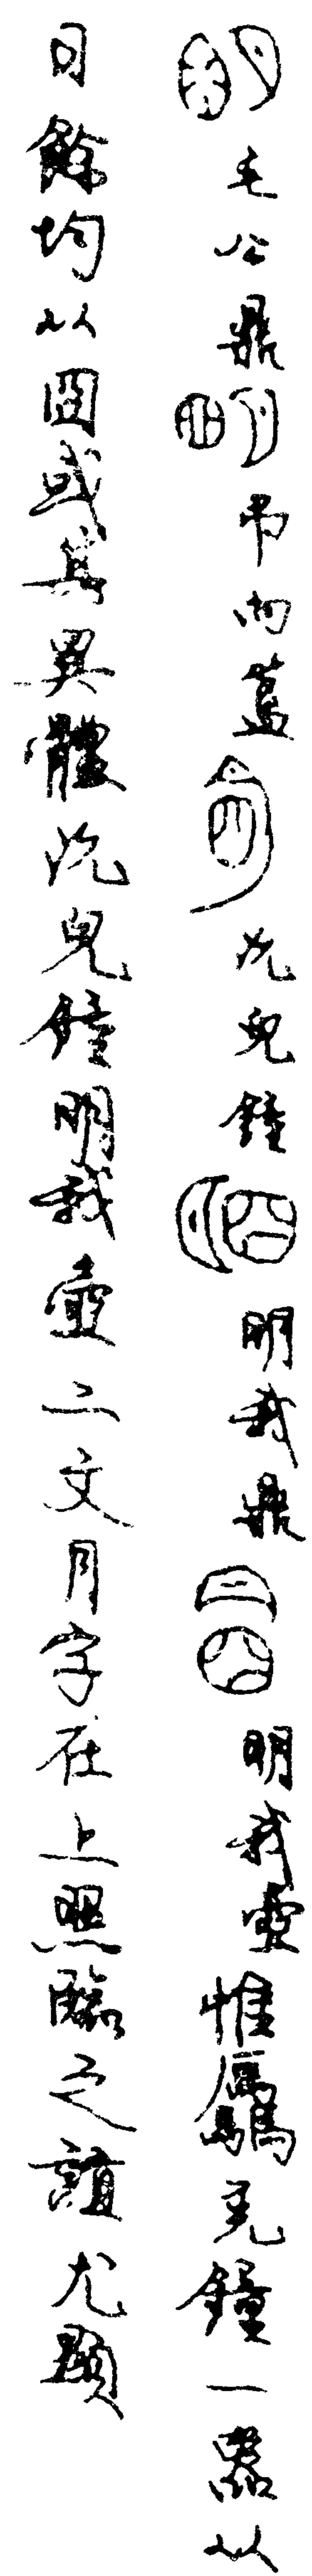 明毛公鼎明弔向簋明沇兒鐘明明我鼎明明我壺惟驫羌鐘一器从
日餘均从囧或其異體沇兒鐘明我壺二文月字在上照臨之誼尤顯